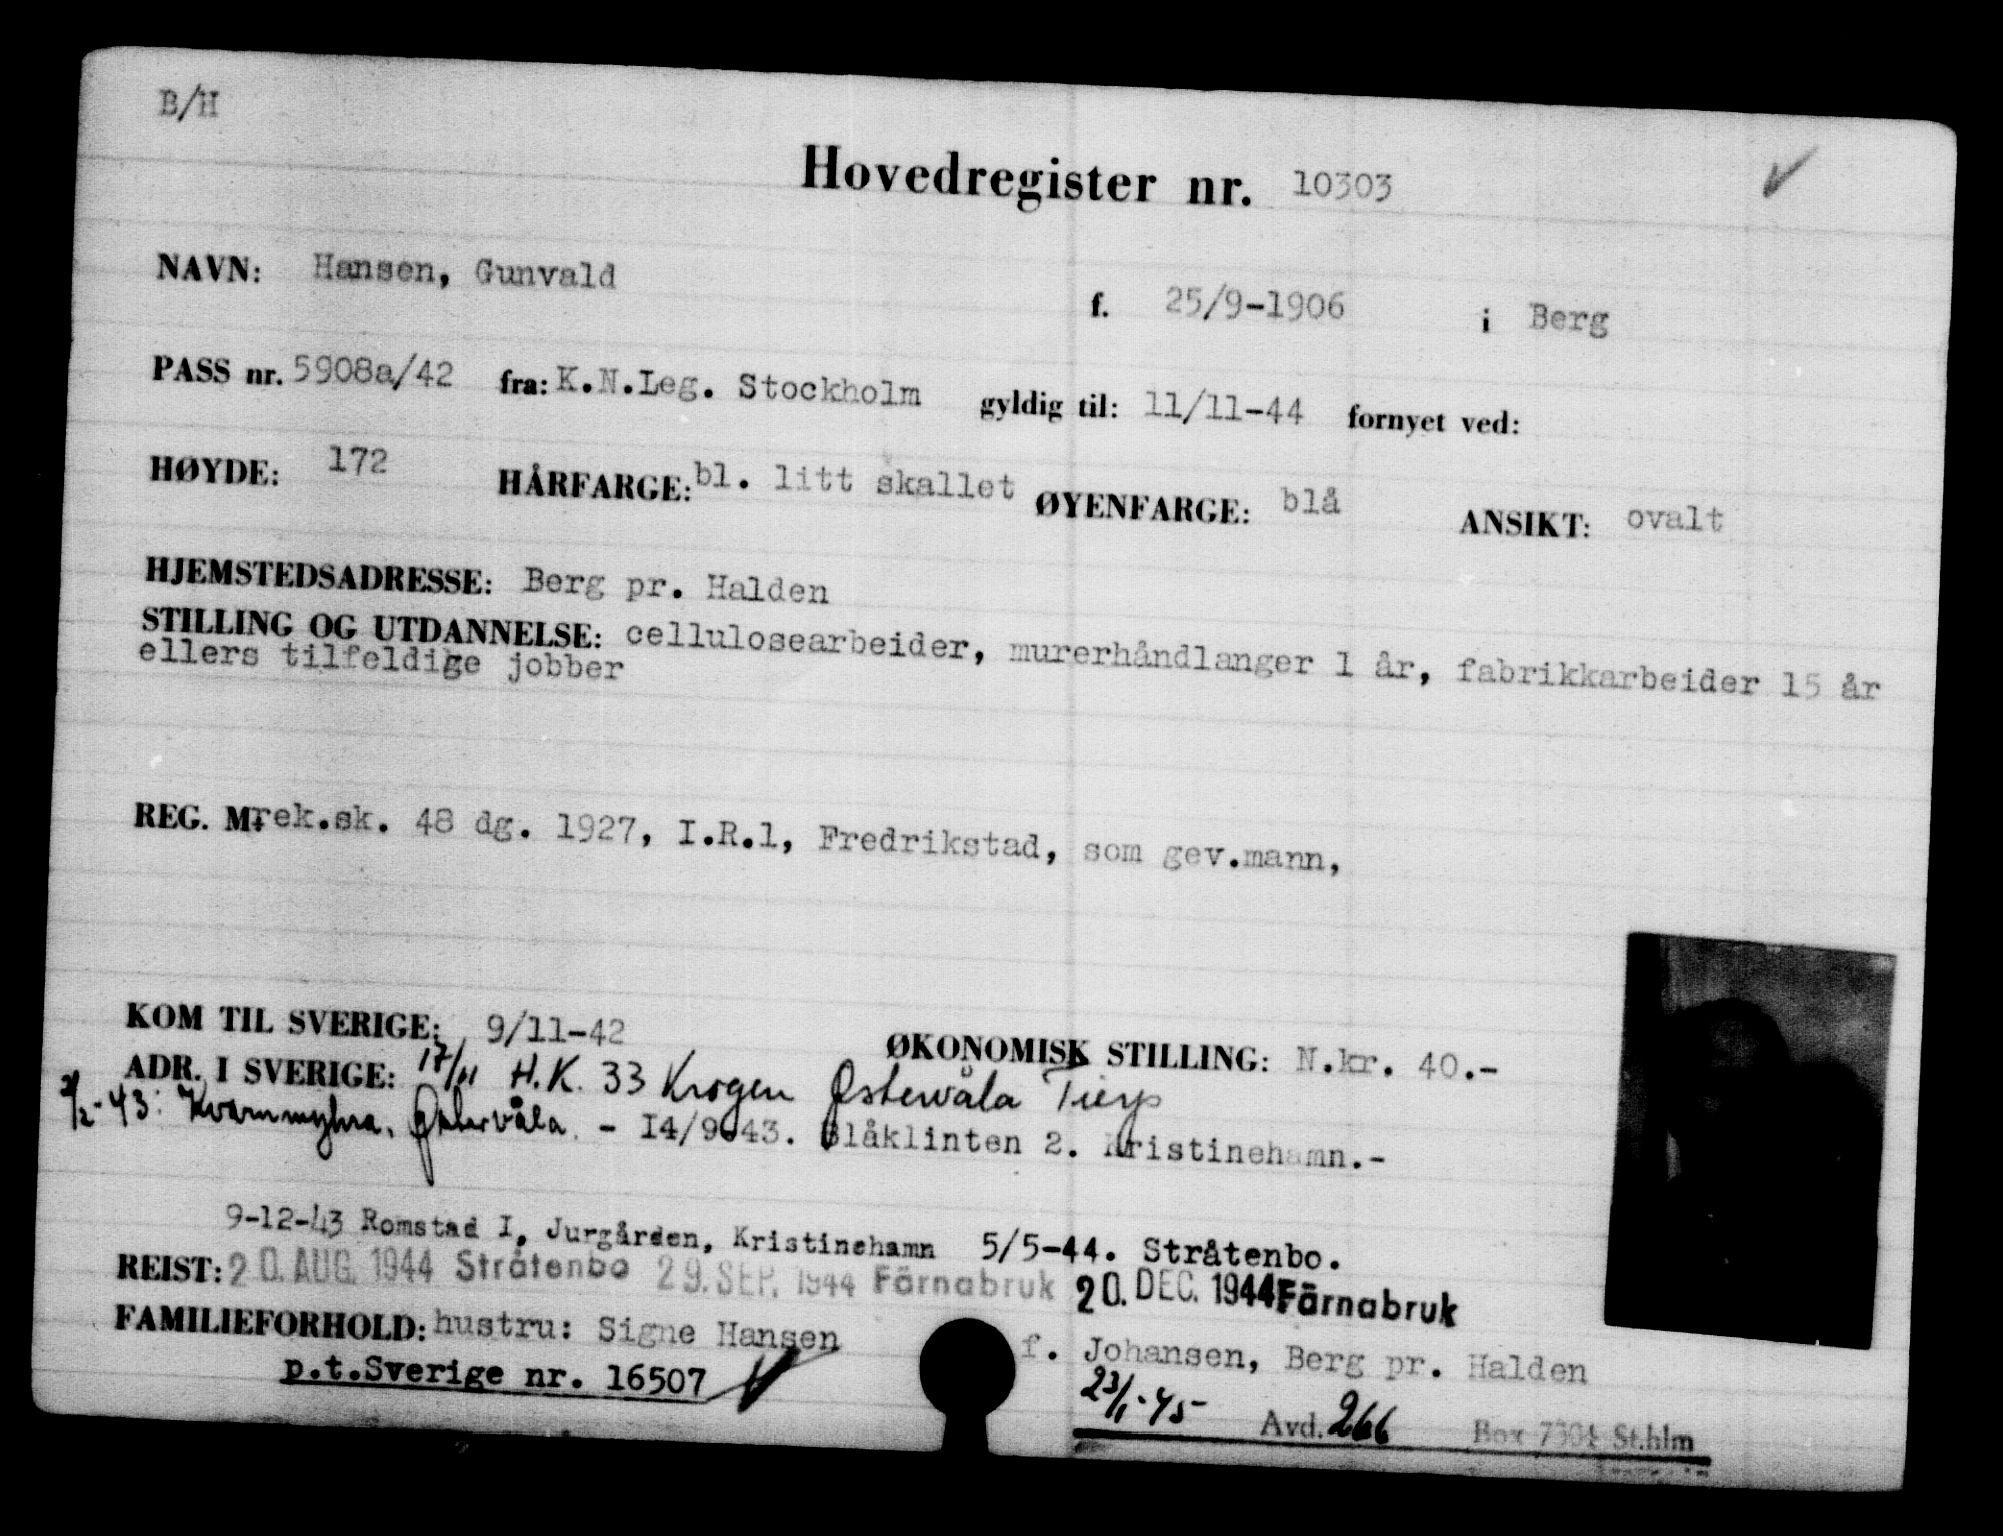 B/H
Hovedregister nr. 10303
NAVN: Hansen, Gunvald f. 25/9-1906 i Berg
PASS nr. 5908a/42 fra: K.N.Leg. Stockholm gyldig til: 11/11-44 fornyet ved:
HØYDE: 172 HÅRFARGE: bl. litt skallet ØYENFARGE: blå ANSIKT: ovalt
HJEMSTEDSADRESSE: Berg pr. Halden
STILLING OG UTDANNELSE: cellulosearbeider, murerhåndlanger 1 år, fabrikkarbeider 15 år
ellers tilfeldige jobber
REG. M: rek.sk. 48 dg. 1927, I.R.1, Fredrikstad, som gev.mann,
KOM TIL SVERIGE: 9/11-42 ØKONOMISK STILLING: N.kr. 40.-
ADR. I SVERIGE: 17/11 H.K. 33 Krogen Østervåla Tierp
2/2-43: Østervåla. - 14/9-43. Blåklinten 2. Kristinehamn.-
9-12-43 Romstad I, Jurgården, Kristinehamn 5/5-44. Stråtenbo.
REIST: 20. AUG. 1944 Stråtenbo 29. SEP. 1944 Färnabruk 20. DEC. 1944 Färnabruk
FAMILIEFORHOLD: hustru: Signe Hansen f. Johansen, Berg pr. Halden
p.t.Sverige nr. 16507
23/1-45 Avd. 266 Box 7304 St.hlm